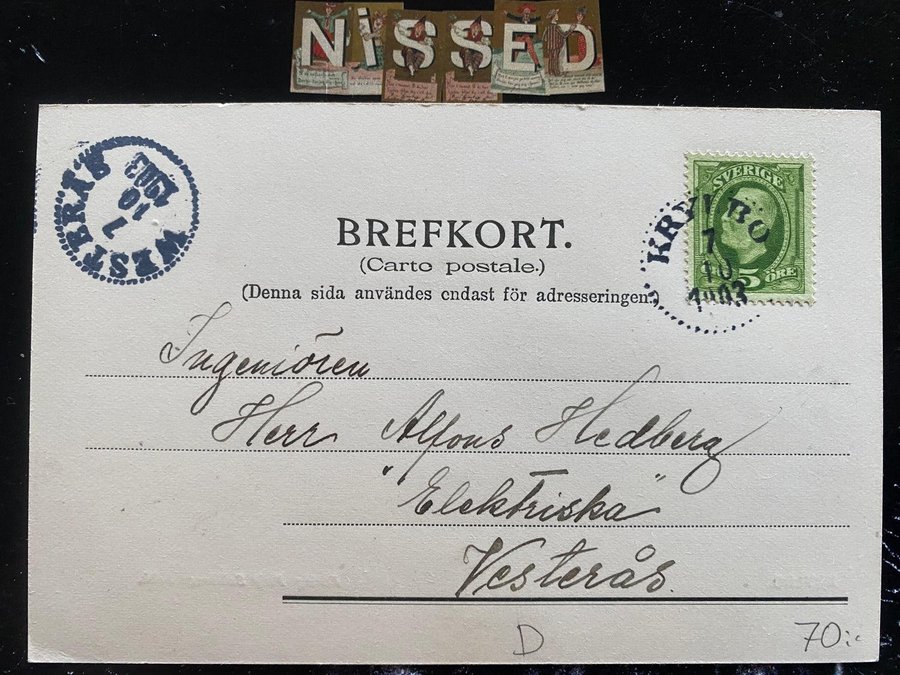 NiSSED
WESTERÅS
7
10
1903
BREFKORT.
(Carte postale.)
(Denna sida användes endast för adresseringen.)
SVERIGE
5 ÖRE
KRYLBO
7
10
1903
Ingeniören
Herr Alfons Hedberg
"Elektriska"
Vesterås.
D
70:-